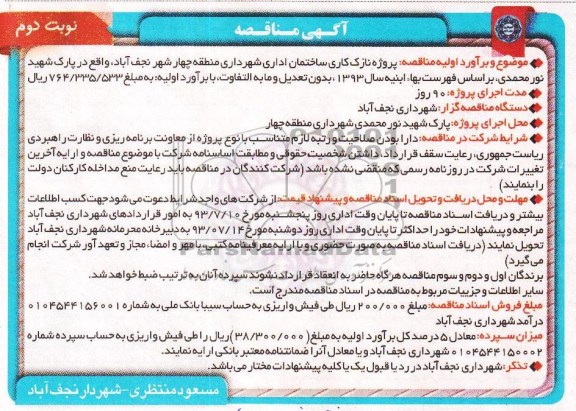 آگهی مناقصه
نوبت دوم
موضوع و برآورد اولیه مناقصه: پروژه نازک کاری ساختمان اداری شهرداری منطقه چهار شهر نجف آباد، واقع در پارک شهید
نور محمدی، براساس فهرست بهاء ابنیه سال ۱۳۹۳، بدون تعدیل و مابه التفاوت، با برآورد اولیه: به مبلغ ۷۶۴/۳۳۵/۵۳۳ ریال
مدت اجرای پروژه: ۹۰ روز
دستگاه مناقصه گزار: شهرداری نجف آباد
محل اجرای پروژه: پارک شهید نور محمدی شهرداری منطقه چهار
شرایط شرکت در مناقصه: دارا بودن صلاحیت و رتبه لازم متناسب با نوع پروژه از معاونت برنامه ریزی و نظارت راهبردی
ریاست جمهوری، رعایت سقف قرارداد، داشتن شخصیت حقوقی و مطابقت اساسنامه شرکت با موضوع مناقصه و ارایه آخرین
تغییرات شرکت در روزنامه رسمی که منقضی نشده باشد (شرکت کنندگان در مناقصه باید رعایت منع مداخله کارکنان دولت
را بنمایند)
مهلت و محل دریافت و تحویل اسناد مناقصه و پیشنهاد قیمت: از شرکت های واجد شرایط دعوت می شود جهت کسب اطلاعات
بیشتر و دریافت اسناد مناقصه تا پایان وقت اداری روز پنجشنبه مورخ ۹۳/۷/۱۰ به امور قراردادهای شهرداری نجف آباد
مراجعه و پیشنهادات خود را حداکثر تا پایان وقت اداری روز دوشنبه مورخ ۹۳/۰۷/۱۴ به دبیرخانه محرمانه شهرداری نجف آباد
تحویل نمایند (دریافت اسناد مناقصه به صورت حضوری و با ارایه معرفینامه کتبی، با مهر و امضاء مجاز و تعهد آور شرکت انجام
می گیرد)
برندگان اول و دوم و سوم مناقصه هرگاه حاضر به انعقاد قرارداد نشوند سپرده آنان به ترتیب ضبط خواهد شد.
سایر اطلاعات و جزییات مربوط به مناقصه در اسناد مناقصه مندرج است.
مبلغ فروش اسناد مناقصه: مبلغ ۲۰۰/۰۰۰ ریال طی فیش واریزی به حساب سیبا بانک ملی به شماره ۰۱۰۴۵۴۴۱۵۶۰۰۱
درآمد شهرداری نجف آباد
میزان سپرده: معادل ۵ درصد کل برآورد اولیه به مبلغ (۳۸/۳۰۰/۰۰۰) ریال را طی فیش واریزی به حساب سپرده شماره
۰۱۰۴۵۴۴۱۵۰۰۰۲ شهرداری نجف آباد و یا معادل آنرا ضمانتنامه معتبر بانکی ارایه نمایند.
تذکر: شهرداری نجف آباد در رد یا قبول یک یا کلیه پیشنهادات مختار می باشد.
مسعود منتظری - شهردار نجف آباد